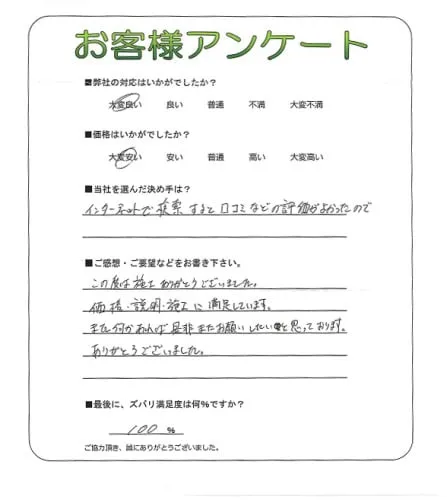 お客様アンケート
■弊社の対応はいかがでしたか？
大変良い 良い 普通 不満 大変不満
■価格はいかがでしたか？
大変安い 安い 普通 高い 大変高い
■当社を選んだ決め手は？
インターネットで検索すると口コミなどの評価がよかったので
■ご感想・ご要望などをお書き下さい。
この度は施工ありがとうございました。
価格・説明・施工に満足しています。
また何かあれば是非またお願いしたいと思っております。
ありがとうございました。
■最後に、ズバリ満足度は何％ですか？
100 %
ご協力頂き、誠にありがとうございました。